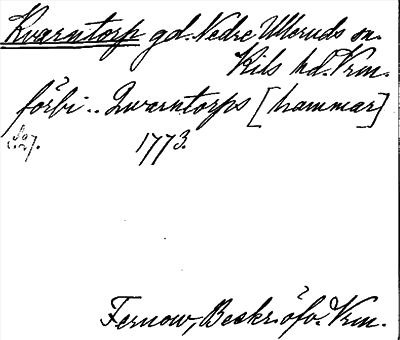 Kvarntorp gd. Nedre Ulleruds sn.
Kils hd. Vrm.
förbi .. Qwarntorps [hammar]
1773.
Fernow, Beskr. öfv. Vrm.